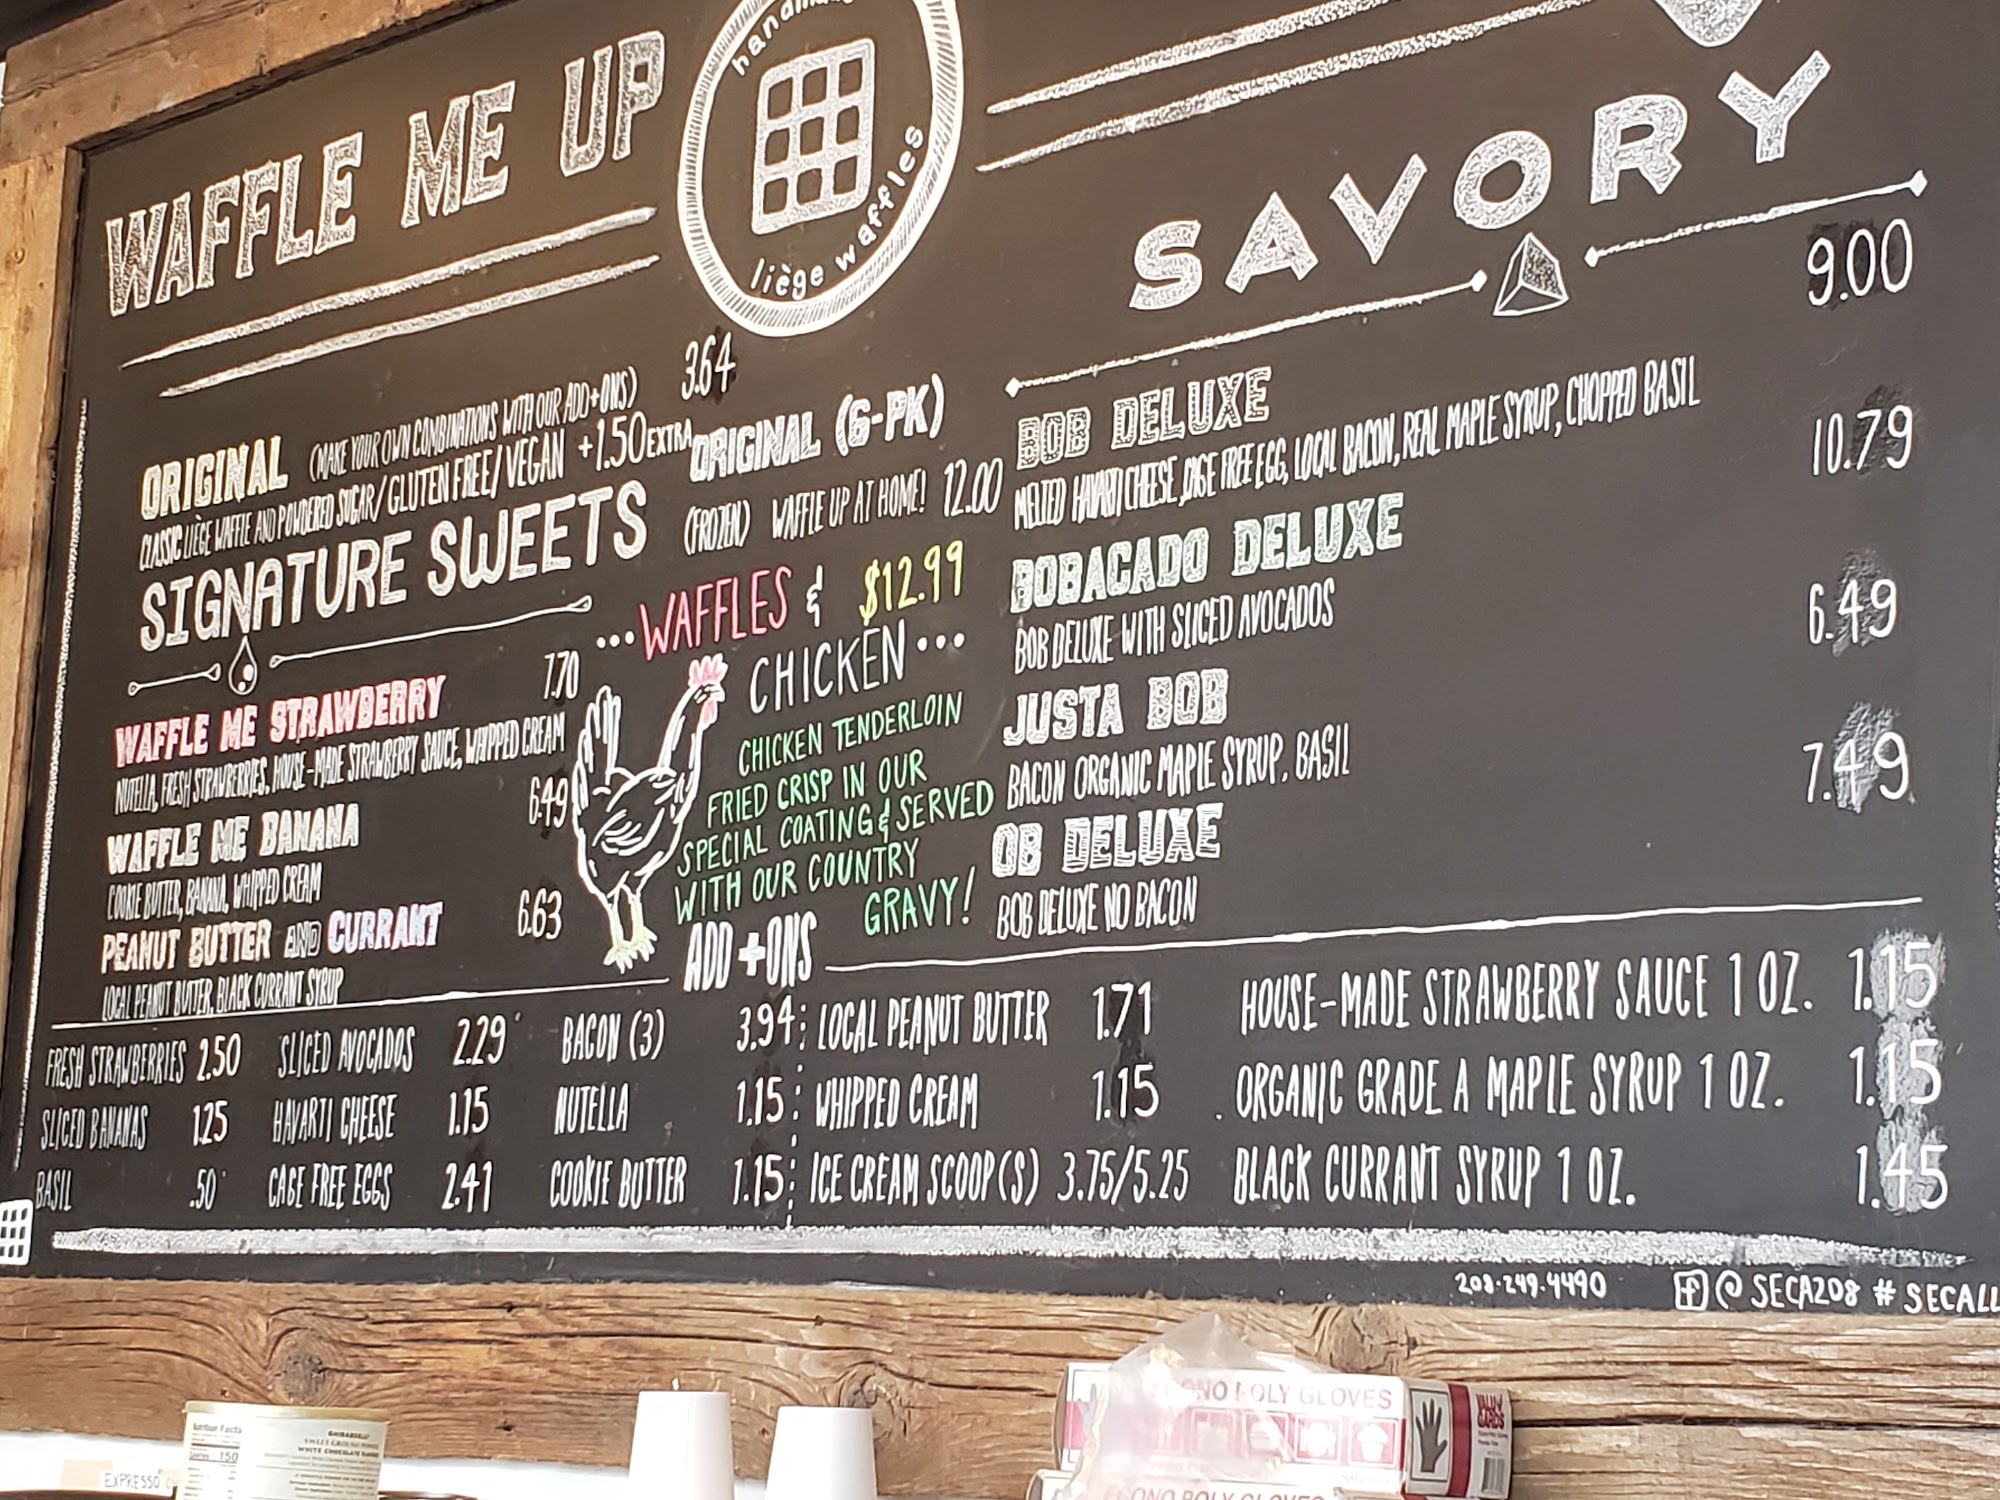 WAFFLE ME UP
liège waffles
ORIGINAL (MAKE YOUR OWN COMBINATIONS WITH OUR ADD+ONS) 3.64
CLASSIC LIÈGE WAFFLE AND POWDERED SUGAR/ GLUTEN FREE/ VEGAN +1.50 EXTRA
ORIGINAL (6-PK)
(FROZEN) WAFFLE UP AT HOME! 12.00
SIGNATURE SWEETS
WAFFLE ME STRAWBERRY 7.70
NUTELLA, FRESH STRAWBERRIES, HOUSE-MADE STRAWBERRY SAUCE, WHIPPED CREAM
WAFFLE ME BANANA 6.49
COOKIE BUTTER, BANANA, WHIPPED CREAM
PEANUT BUTTER AND CURRANT 6.63
LOCAL PEANUT BUTTER, BLACK CURRANT SYRUP
...WAFFLES & $12.99
CHICKEN...
CHICKEN TENDERLOIN
FRIED CRISP IN OUR
SPECIAL COATING & SERVED
WITH OUR COUNTRY
GRAVY!
SAVORY
BOB DELUXE 9.00
MELTED HAVARTI CHEESE, CAGE FREE EGG, LOCAL BACON, REAL MAPLE SYRUP, CHOPPED BASIL
BOBACADO DELUXE 10.79
BOB DELUXE WITH SLICED AVOCADOS
JUSTA BOB 6.49
BACON ORGANIC MAPLE SYRUP. BASIL
OB DELUXE 7.49
BOB DELUXE NO BACON
ADD +ONS
FRESH STRAWBERRIES 2.50 SLICED AVOCADOS 2.29 BACON (3) 3.94 LOCAL PEANUT BUTTER 1.71 HOUSE-MADE STRAWBERRY SAUCE 1 OZ. 1.15
SLICED BANANAS 1.25 HAVARTI CHEESE 1.15 NUTELLA 1.15 WHIPPED CREAM 1.15 ORGANIC GRADE A MAPLE SYRUP 1 OZ. 1.15
BASIL .50 CAGE FREE EGGS 2.41 COOKIE BUTTER 1.15 ICE CREAM SCOOP(S) 3.75/5.25 BLACK CURRANT SYRUP 1 OZ. 1.45
208.249.4490 f @SECA208 # SECALL
POLY GLOVES
Nutrition Facts
150
GHIRARDELLI
SWEET GROUND
WHITE CHOCOLATE FLAVORED
EXPRESSO